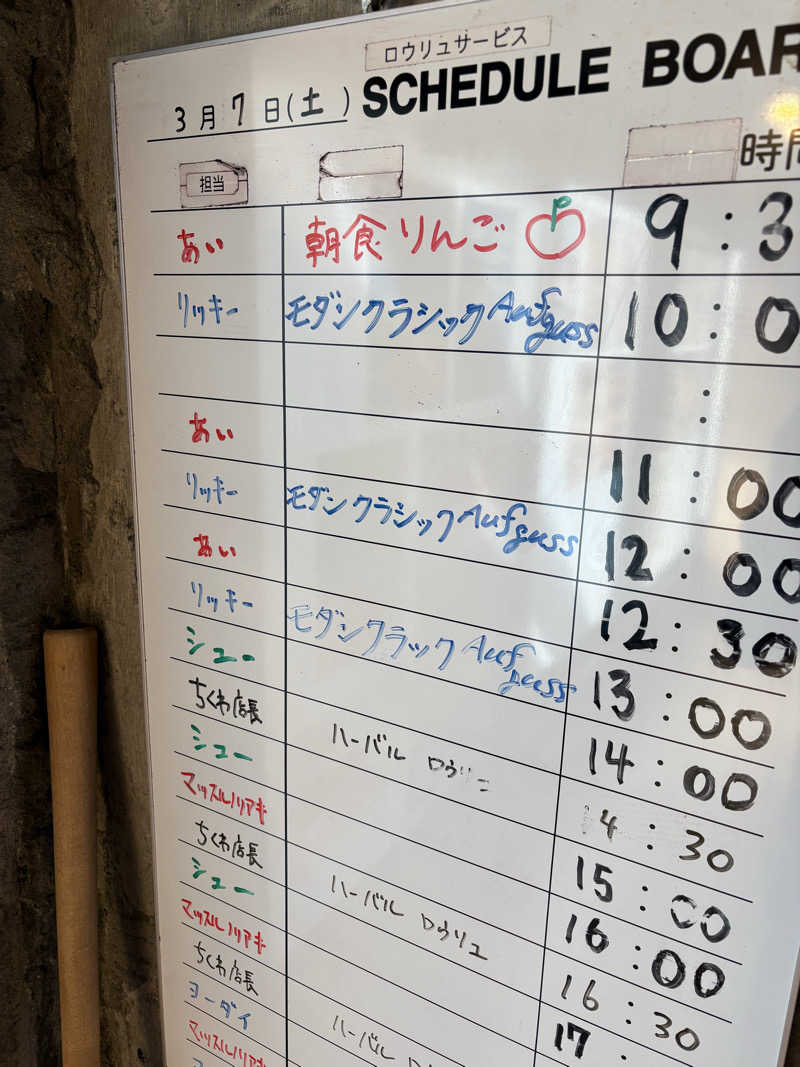 ロウリュサービス
3月7日(土) SCHEDULE BOAR
担当 時間
あい 朝食りんご 9:3
リッキー モダンクラシックAufguss 10:0
:
あい 11:00
リッキー モダンクラシックAufguss 12:00
あい 12:30
リッキー モダンクラックAufguss 13:00
シュー 14:00
ちくわ店長 ハーバル ロウリュ 14:30
シュー 15:00
マッスルノリアキ 16:00
ちくわ店長 ハーバル ロウリュ 16:30
シュー 17:
マッスルノリアキ
ちくわ店長 ハーバル
ヨーダイ
マッスルノリアキ